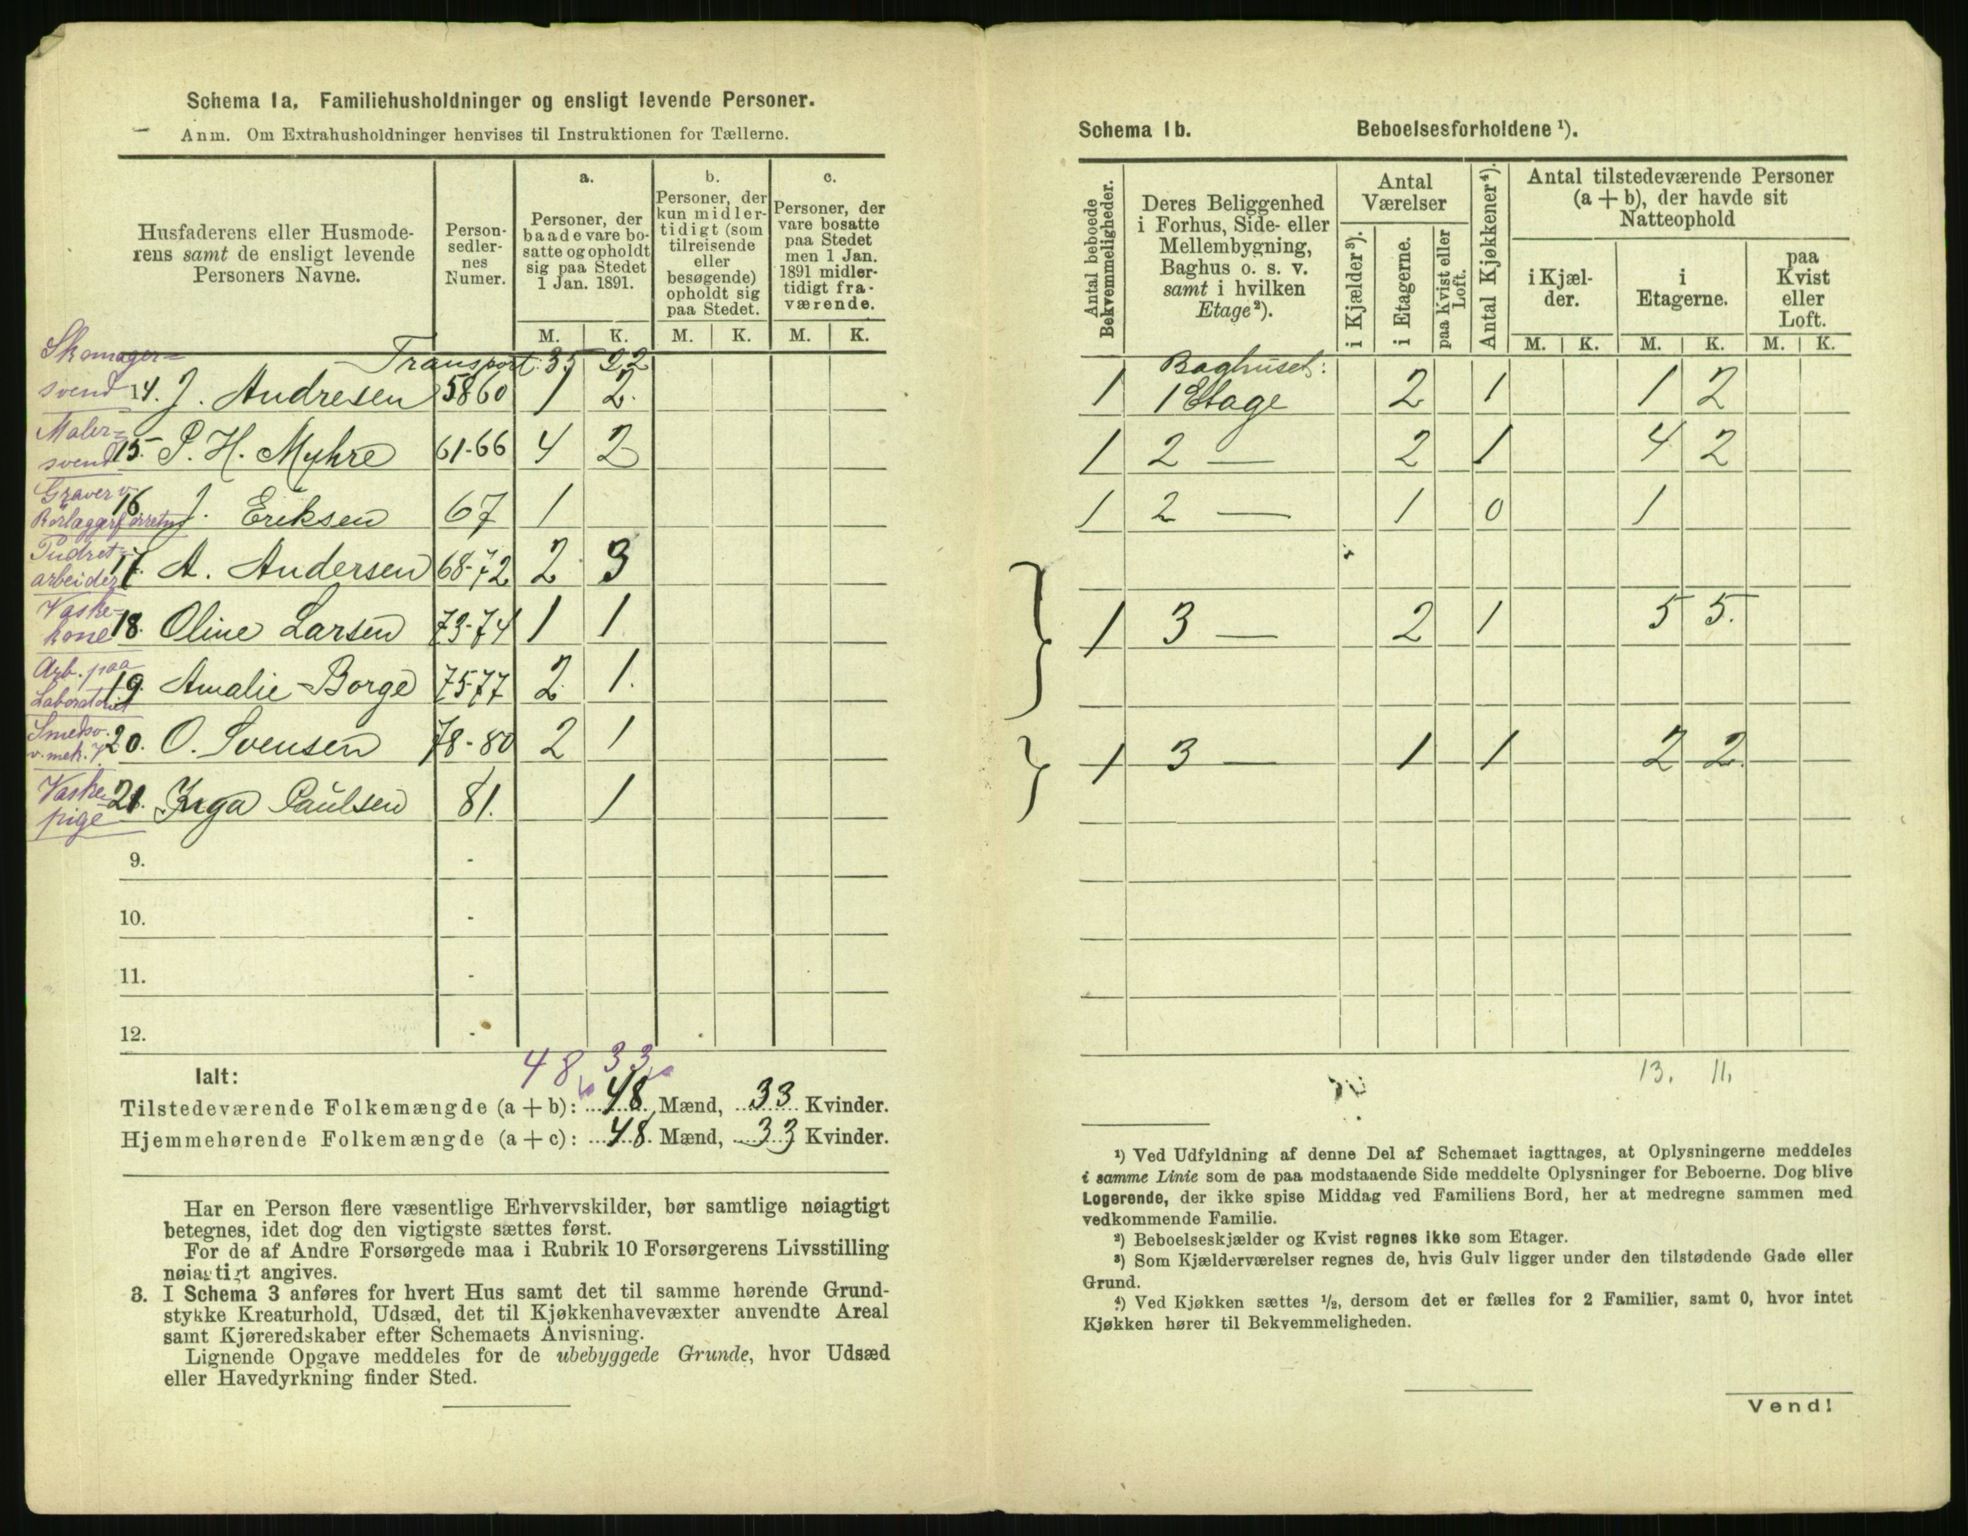 Schema 1a. Familiehusholdninger og ensligt levende Personer.
Anm. Om Extrahusholdninger henvises til Instruktionen for Tællerne.
Husfaderens eller Husmode-
rens samt de ensligt levende
Personers Navne.
Person-
sedler-
nes
Numer.
a.
Personer, der
baade vare bo-
satte og opholdt
sig paa Stedet
1 Jan. 1891.
b.
Personer, der
kun midler-
tidigt (som
tilreisende
eller
besøgende)
opholdt sig
paa Stedet.
c.
Personer, der
vare bosatte
paa Stedet
men 1 Jan.
1891 midler-
tidigt fra-
værende.
M. K. M. K. M. K.
Transport 35 22
Skomager-
svend 14. J. Andresen 58 60 1 2.
Maler-
svend 15. P. H. Myhre 61-66 4 2
Graver v.
Rörlæggerforretng 16 J. Eriksen 67 1
Pudret-
arbeider 17. A. Andersen 68-72 2 3
Vaske-
kone 18. Oline Larsen 73-74 1 1
Arb. paa
Laboratoriet 19. Amalie Borge 75-77 2 1.
Smedsv.
v. mek. 20. O. Svensen 78-80 2 1
Vaske-
pige 21. Inga Paulsen 81. 1
9.
10.
11.
12.
48 33
Ialt:
Tilstedeværende Folkemængde (a + b): 48 Mænd, 33 Kvinder.
Hjemmehørende Folkemængde (a + c): 48 Mænd, 33 Kvinder.
Har en Person flere væsentlige Erhvervskilder, bør samtlige nøiagtigt
betegnes, idet dog den vigtigste sættes først.
For de af Andre Forsørgede maa i Rubrik 10 Forsørgerens Livsstilling
nøiagtigt angives.
3. I Schema 3 anføres for hvert Hus samt det til samme hørende Grund-
stykke Kreaturhold, Udsæd, det til Kjøkkenhavevæxter anvendte Areal
samt Kjøreredskaber efter Schemaets Anvisning.
Lignende Opgave meddeles for de ubebyggede Grunde, hvor Udsæd
eller Havedyrkning finder Sted.
Schema 1b. Beboelsesforholdene ¹).
Antal beboede
Bekvemmeligheder.
Deres Beliggenhed
i Forhus, Side- eller
Mellembygning,
Baghus o. s. v.
samt i hvilken
Etage²).
Antal
Værelser
i Kjælder³).
i Etagerne.
paa Kvist eller
Loft.
Antal Kjøkkener⁴).
Antal tilstedeværende Personer
(a + b), der havde sit
Natteophold
i Kjæl-
der.
i
Etagerne.
paa
Kvist
eller
Loft.
M. K. M. K. M. K.
Baghuset:
1 1 Etage 2 1 1 2
1 2 — 2 1 4 2
1 2 — 1 0 1
1 3 — 2 1 5 5.
1 3 — 1 1 2 2
13. 11.
¹) Ved Udfyldning af denne Del af Schemaet iagttages, at Oplysningerne meddeles
i samme Linie som de paa modstaaende Side meddelte Oplysninger for Beboerne. Dog blive
Logerende, der ikke spise Middag ved Familiens Bord, her at medregne sammen med
vedkommende Familie.
²) Beboelseskjælder og Kvist regnes ikke som Etager.
³) Som Kjælderværelser regnes de, hvis Gulv ligger under den tilstødende Gade eller
Grund.
⁴) Ved Kjøkken sættes ½, dersom det er fælles for 2 Familier, samt 0, hvor intet
Kjøkken hører til Bekvemmeligheden.
Vend!